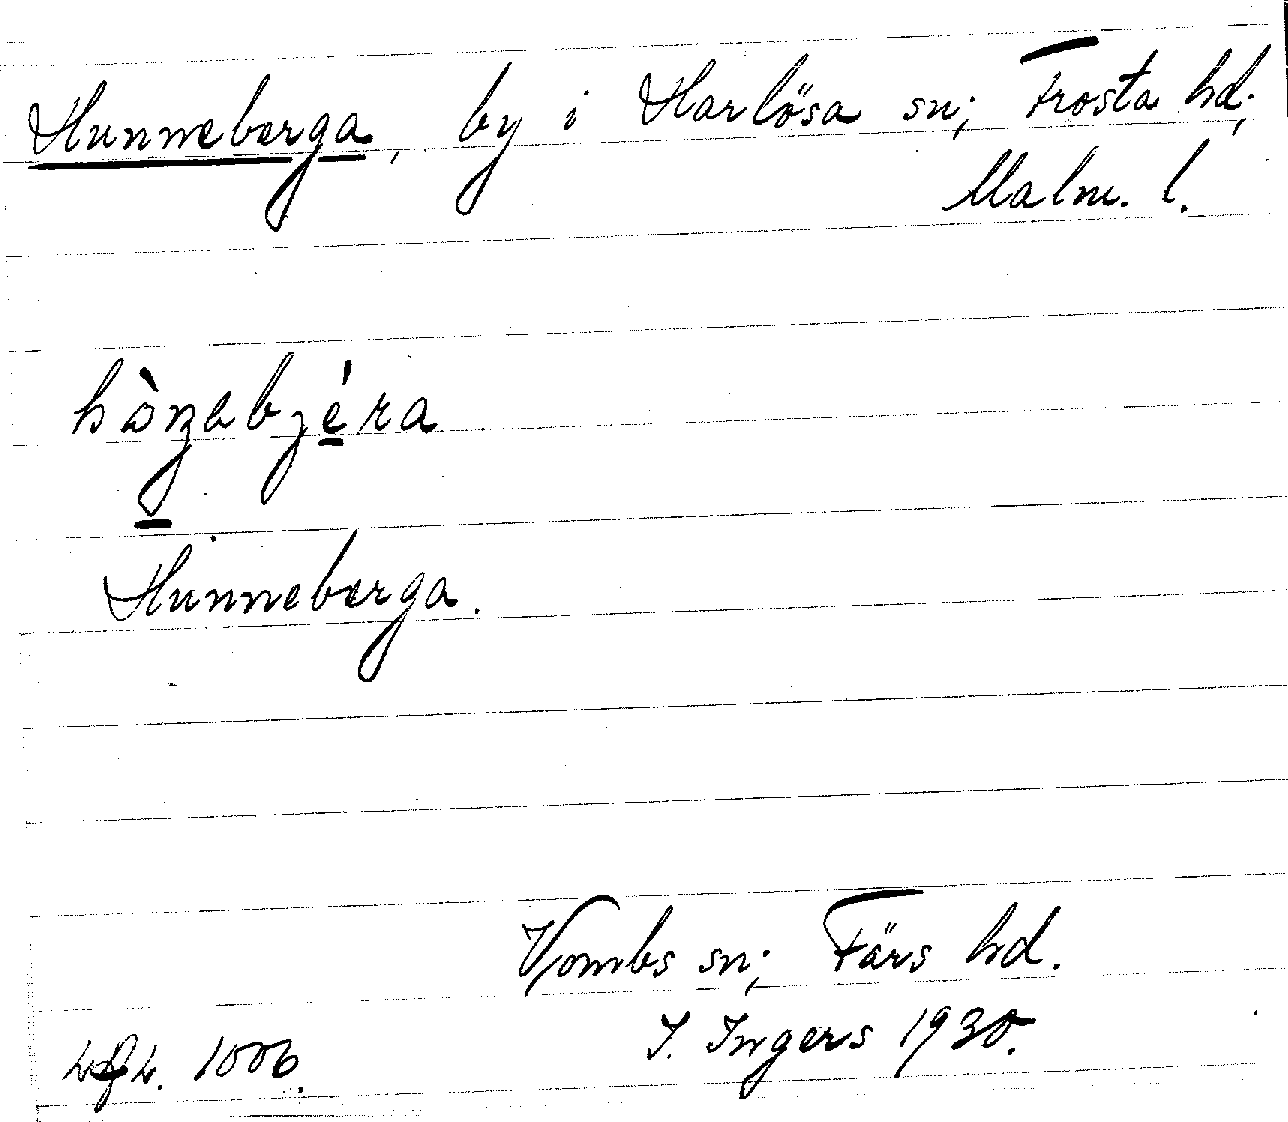 Hunneberga, by i Harlösa sn; Frosta hd;
Malm. l.
Hunneberga.
Vombs sn; Färs hd.
I. Ingers 1930.
1006.